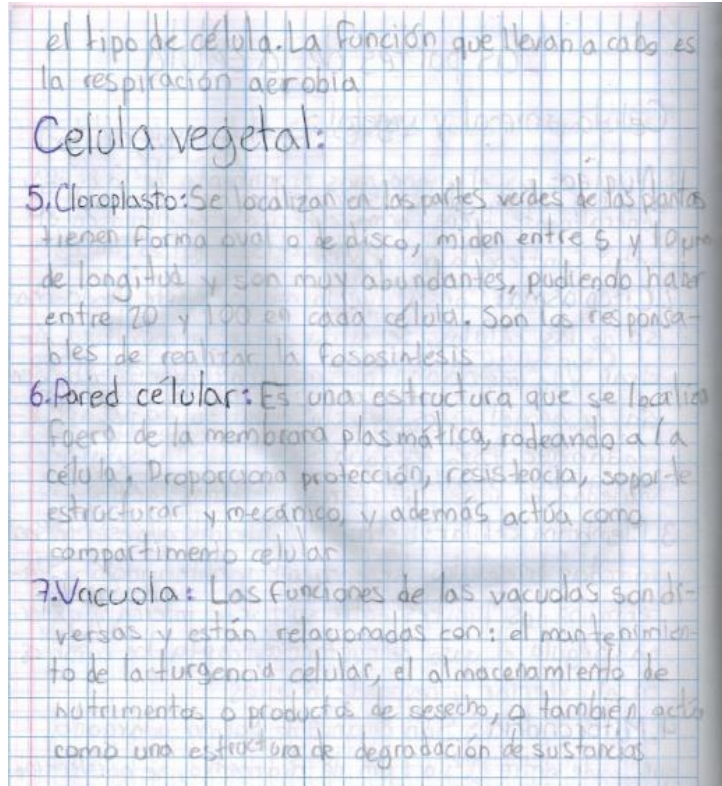 el tipo de célula. La función que llevan a cabo es
la respiración aerobia
Celula vegetal:
5. Cloroplasto: Se localizan en las partes verdes de las plantas
tienen forma oval o de disco, miden entre 5 y 10 µm
de longitud y son muy abundantes, pudiendo haber
entre 20 y 100 en cada célula. Son los responsa-
bles de realizar la fososintesis
6. Pared célular: Es una estructura que se localiza
fuera de la membrana plasmática, rodeando a la
célula. Proporciona protección, resistencia, soporte
estructurar y mecánico, y además actúa como
compartimento celular
7. Vacuola: Las funciones de las vacuolas son di-
versas y están relacionadas con: el mantenimien-
to de la turgencia celular, el almacenamiento de
nutrimentos o productos de sesecho, o también actúa
como una estructura de degradación de sustancias